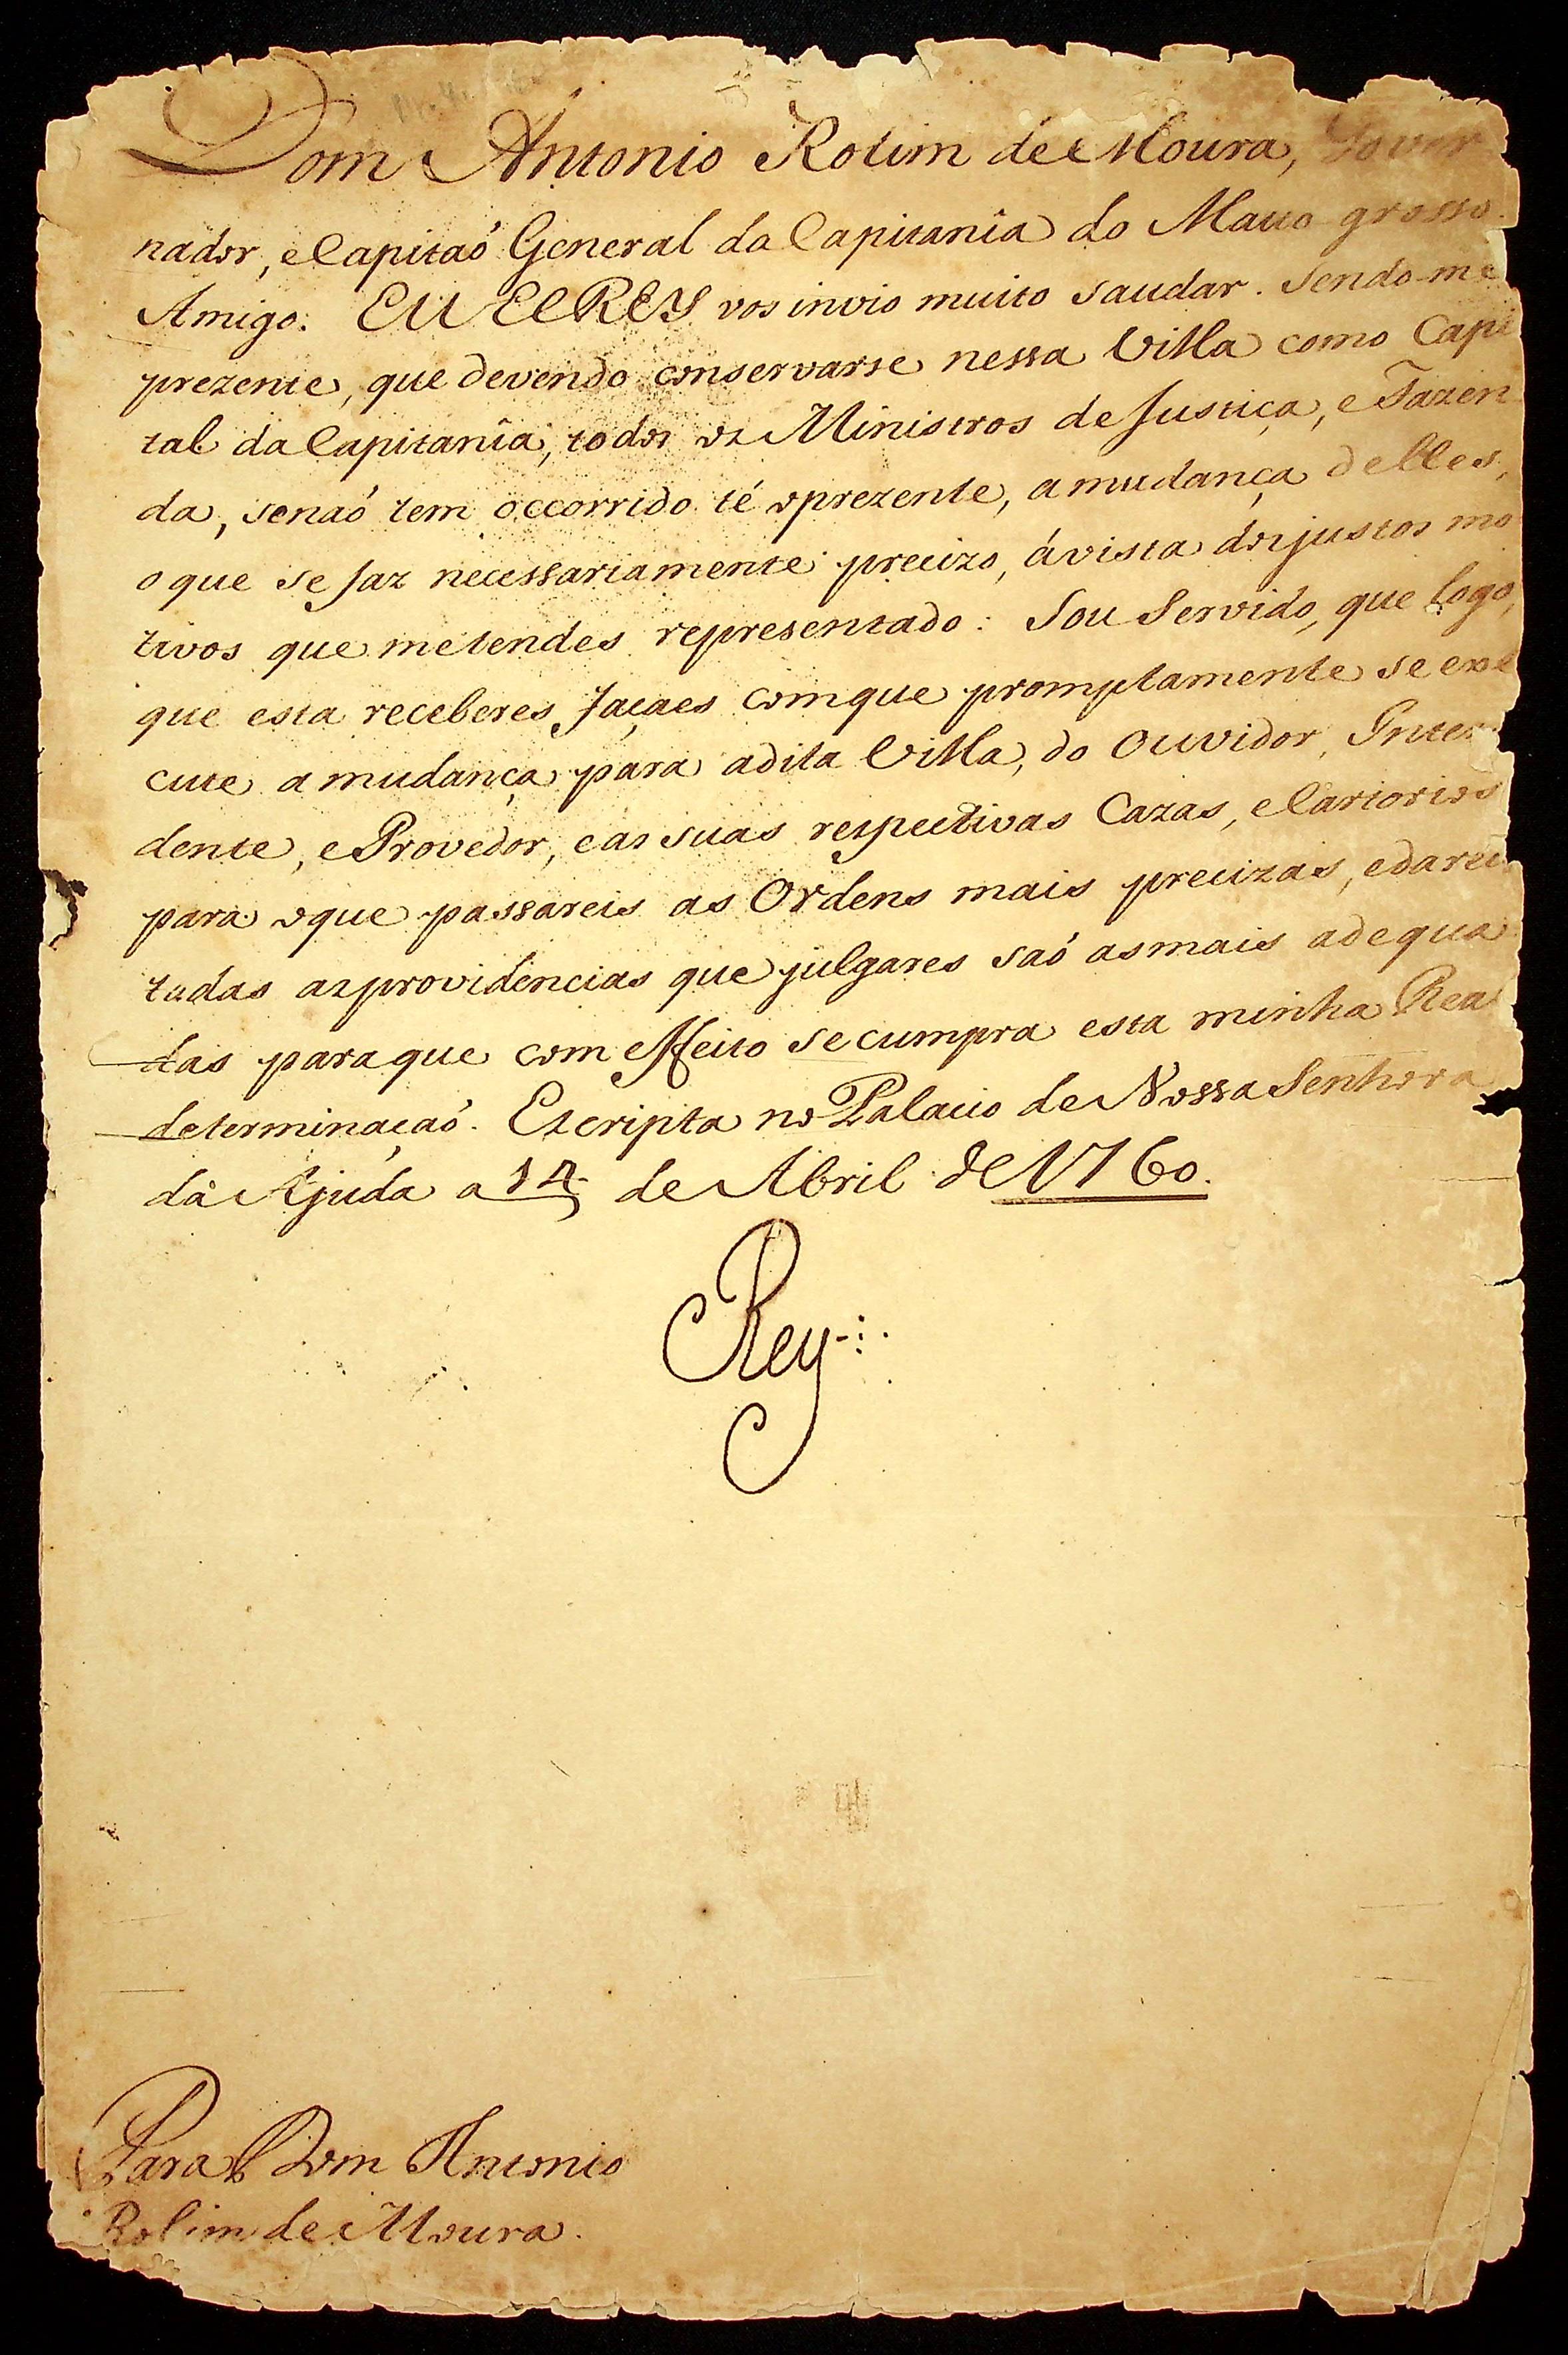 Dom Antonio Rolim de Moura, Gover
nador, e Capitaõ General da Capitanîa do Matto grosso.
Amigo. EU ELREY vos invio muito saudar. Sendo-me
prezente, que devendo conservarse nessa Villa como Capi
tal da Capitanîa, todos os Ministros de Justiça, e Fazen
da, senaõ tem occorrido té oprezente, a mudança delles,
o que se faz necessariamente precizo, ávista dos justos mo
tivos que metendes representado: Sou Servido, que logo,
que esta receberes, façaes comque promptamente se exe
cute a mudança para adita Villa, do Ouvidor, Inten
dente, e Provedor, e as suas respectivas Cazas, e Cartorios
para oque passareis as Ordens mais precizas, edareis
todas asprovidencias que julgares saõ asmais adequa
das paraque com effeito se cumpra esta minha Real
determinaçaõ. Escripta no Palacio de Nossa Senhora
da Ajuda a 14 de Abril de 1760.
Rey
Para Dom Antonio
Rolim de Moura.